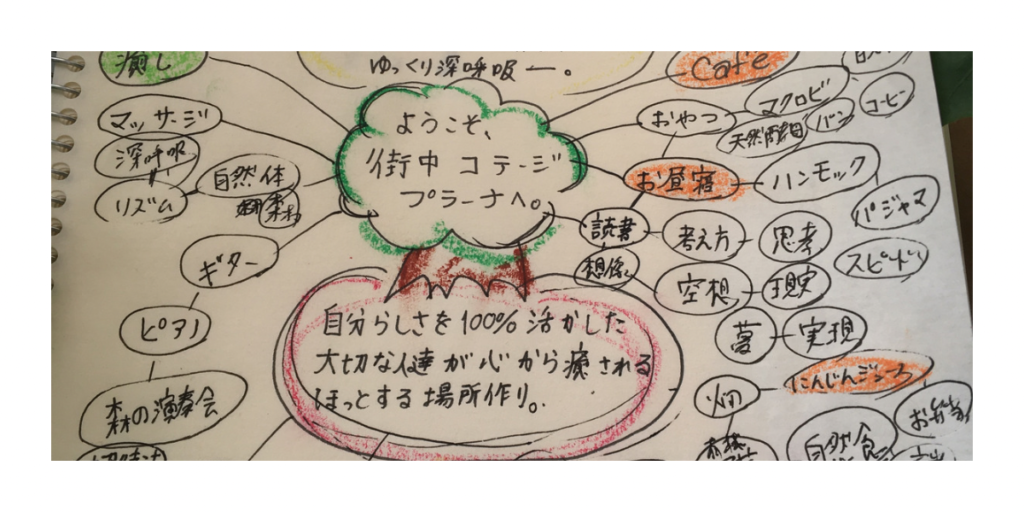 癒し
ゆっくり深呼吸ー。
Cafe
マッサージ
ようこそ、
街中コテージ
プラーナへ。
おやつ
マクロビ
コーヒー
パン
深呼吸
自然体
リズム
お昼寝
ハンモック
パジャマ
読書
考え方
思考
想像
空想
現実
スピード
ギター
ピアノ
夢
実現
自分らしさを100%活かした
大切な人達が心から癒される
ほっとする場所作り。
畑
にんじんジュース
森の演奏会
お弁当
自然食